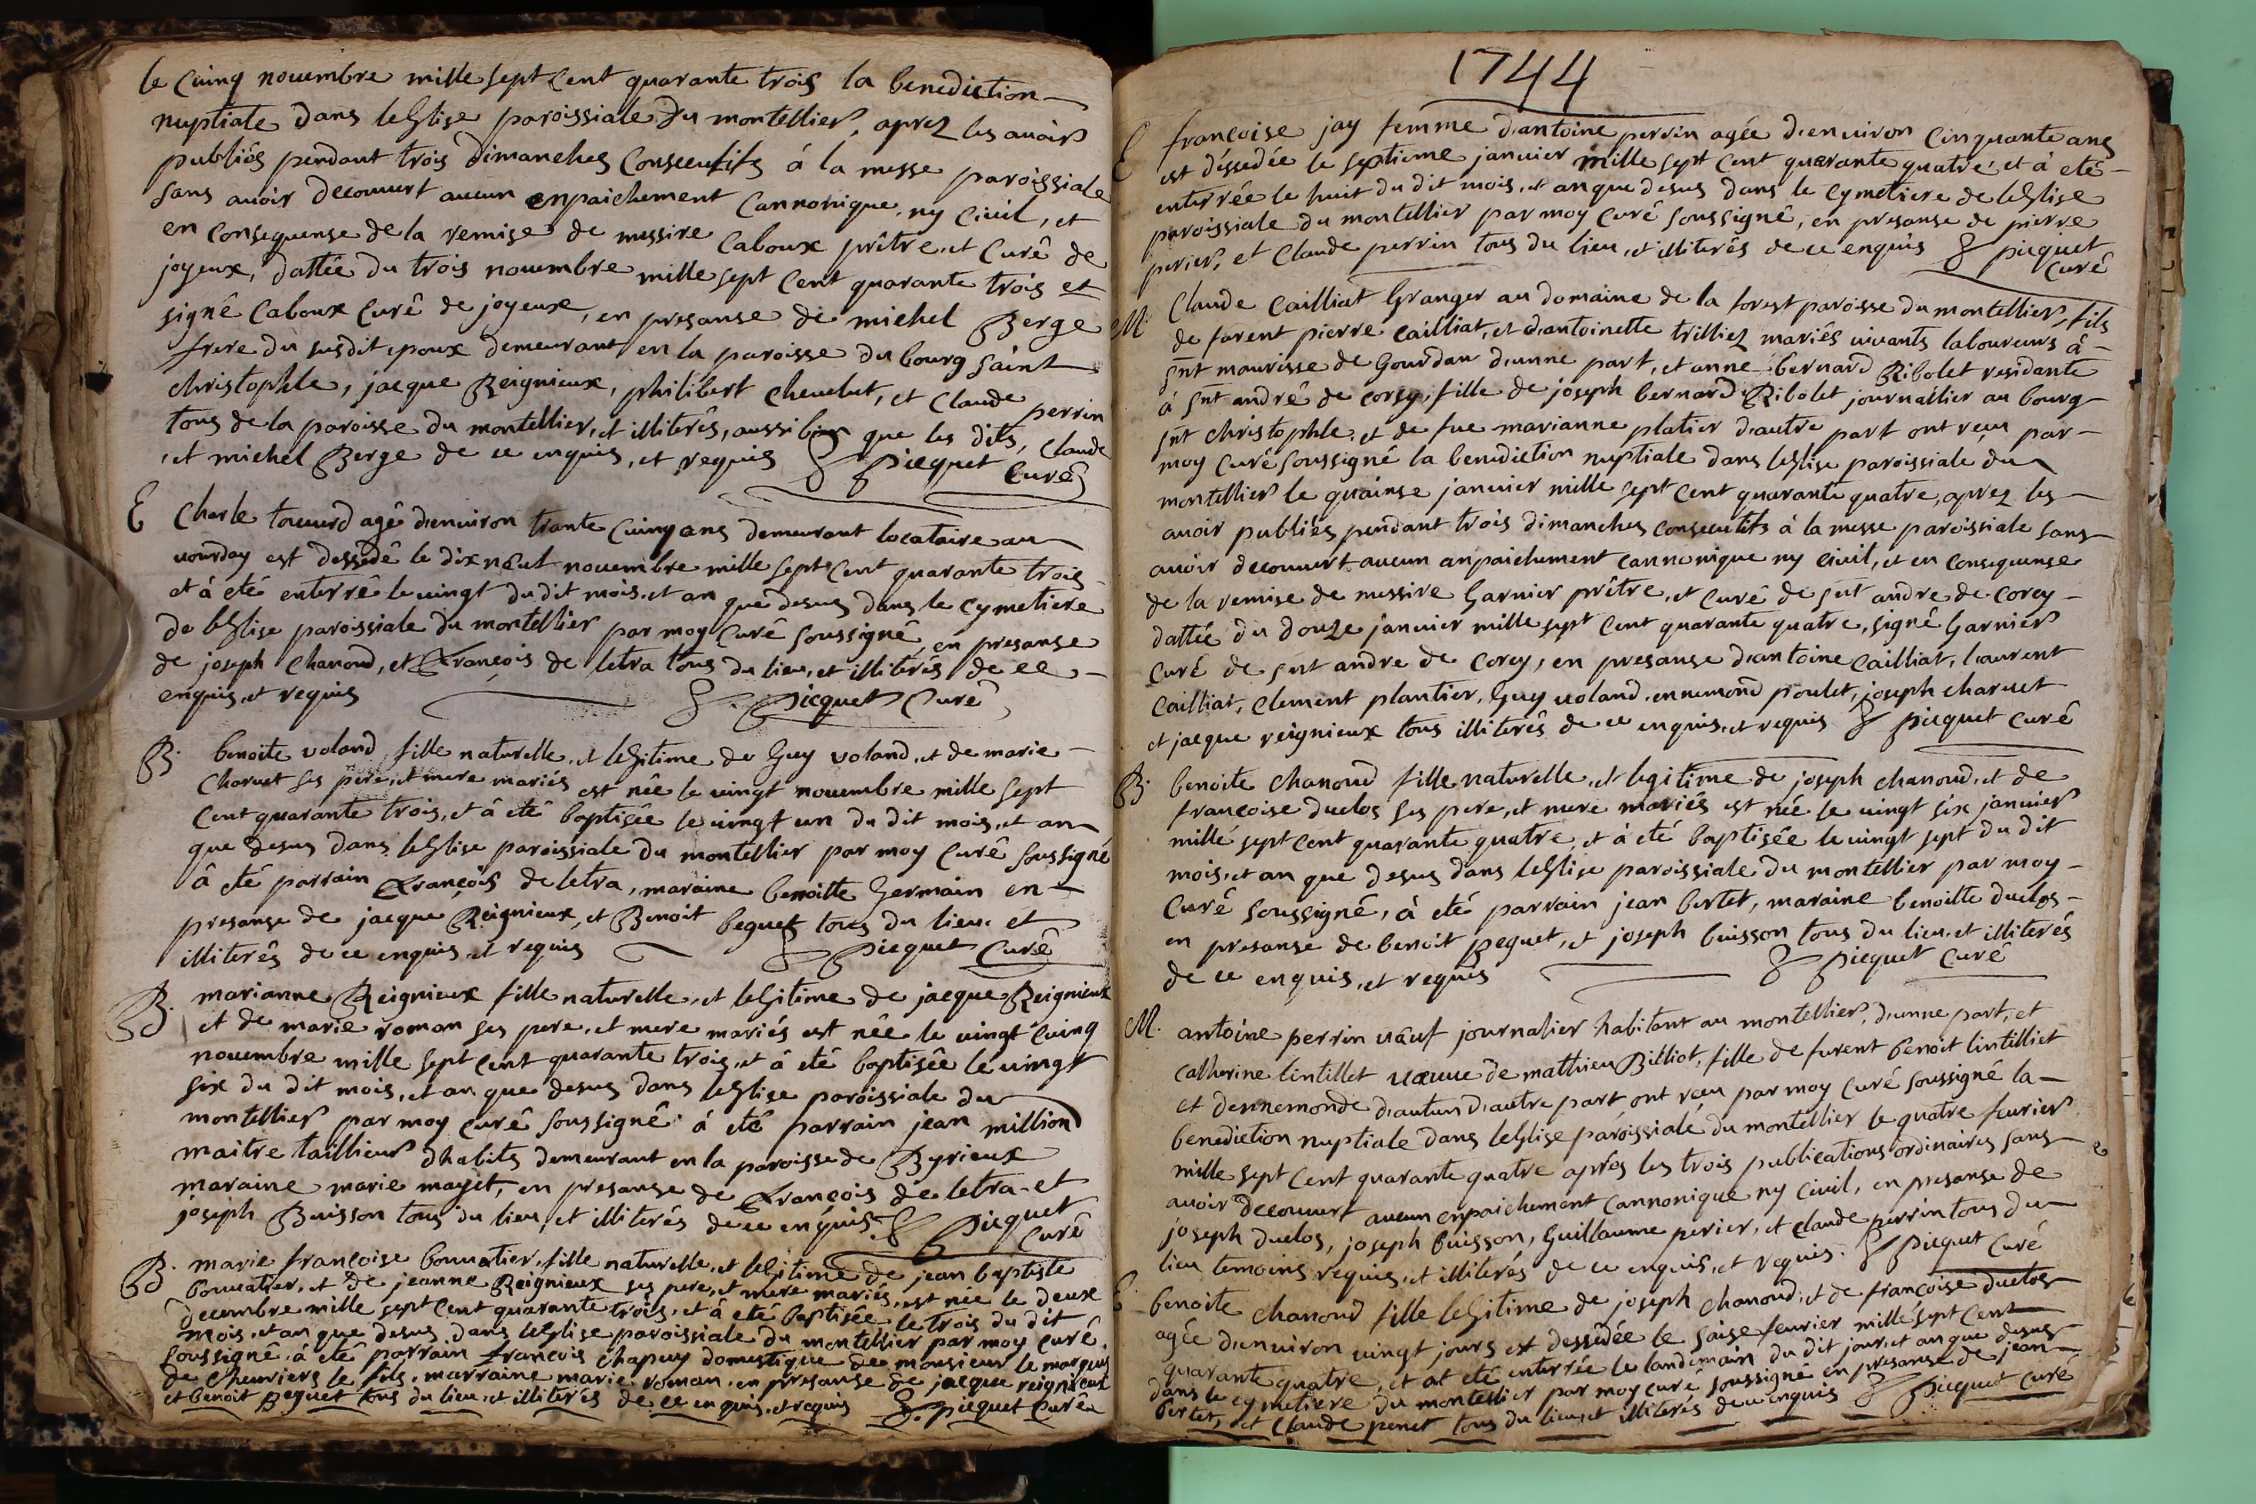 le cuinq nouembre mille sept cent quarante trois la benediction
nuptiale dans leglise paroissiale du montellier, aprez les auoir
publiés pendant trois dimanches consecutifs á la messe paroissiale
sans auoir decouuert aucun enpaichement cannonique ny ciuil, et
en consequense de la remise de messire Caboux prêtre, et curé de
joyeux, dattée du trois nouembre mille sept cent quarante trois et
signé Caboux curé de joyeux, en presanse de michel Berge
frere du susdit epoux demeurant en la paroisse du bourg saint
christophle, jacque Reignieux, philibert cheuelut, et claude perrin
tous de la paroisse du montellier, et illiterés, aussi bien que les dits, claude
et michel Berge de ce enquis, et requis Picquet
Curé
E Charle touurd agé d'enuiron trante cuinq ans demeurant locataire au
uourday est dessedé le dix neuf nouembre mille sept cent quarante trois
et á eté enterré le uingt du dit mois, et an que desus dans le cymetiere
de leglise paroissiale du montellier par moy curé soussigné, en presanse
de joseph chanoud, et françois de letra tous du lieu, et illiterés de ce
enquis, et requis Picquet Curé
B. benoite uoland fille naturelle, et legitime de Guy uoland, et de marie
charuet ses pere, et mere mariés est née le uingt nouembre mille sept
cent quarante trois, et á eté baptisée le uingt un du dit mois, et an
que desus dans leglise paroissiale du montellier par moy curé soussigné
á eté parrain françois de letra, maraine benoitte Germain en
presanse de jacque Reignieux, et Benoit beguet tous du lieu et
illiterés de ce enquis, et requis Picquet Curé
B. marianne Reignieux fille naturelle, et legitime de jacque Reignieux
et de marie roman ses pere, et mere mariés est née le uingt cuinq
nouembre mille sept cent quarante trois, et á eté baptisée le uingt
six du dit mois, et an que desus dans leglise paroissiale du
montellier par moy curé soussigné á eté parrain jean million
maitre taillieur dhabits demeurant en la paroisse de Byrieux
maraine marie mayet, en presanse de françois de letra et
joseph Buisson tous du lieu, et illiterés de ce enquis. Picquet
Curé
B. marie françoise bouuatier, fille naturelle, et legitime de jean baptiste
bouuatier, et de jeanne Reignieux ses pere, et mere mariés, est née le deux
decembre mille sept cent quarante trois, et á eté baptisée le trois du dit
mois, et an que desus dans leglise paroissiale du montellier par moy curé
soussigné á eté parrain francois chapuy domestique de monsieur le marquis
de cheuriers le fils, marraine marie roman, en presanse de jacque reignieux
et benoit Beguet tous du lieu, et illiterés de ce enquis, et requis Picquet Curé
1744
E françoise jay femme d'antoine perrin agée d'enuiron cinquante ans
est dessedée le septieme januier mille sept cent quarante quatre et á eté
enterrée le huit du dit mois, et an que desus dans le cymetiere de leglise
paroissiale du montellier par moy curé soussigné, en presanse de pierre
perier, et Claude perrin tous du lieu, et illiterés de ce enquis Picquet
Curé
M Claude Cailliat Granger au domaine de la forest paroisse du montellier, fils
de furent pierre Cailliat, et d'antoinette trilliez mariés uiuants laboureurs á
snt maurisse de Gourdan d'unne part, et anne bernard Ribolet residante
á snt andré de corsy, fille de joseph bernard Ribolet journallier au bourg
snt christophle, et de fue marianne platier d'autre part ont reçu par
moy curé soussigné la benediction nuptiale dans leglise paroissiale du
montellier le quainse januier mille sept cent quarante quatre, aprez les
auoir publiés pendant trois dimanches consecutifs á la messe paroissiale sans
auoir decouuert aucun anpaichement cannonique ny ciuil, et en consequense
de la remise de messire Garnier prêtre, et curé de snt andre de corcy
dattée du douze januier mille sept cent quarante quatre, signé Garnier
curé de snt andre de corcy, en presanse d'antoine Cailliat, laurent
Cailliat, clement plantier, Guy uoland, ennemond poulet, joseph charuet
et jacque reignieux tous illiterés de ce enquis, et requis Picquet curé
B. benoite chanoud fille naturelle, et legitime de joseph chanoud, et de
françoise duclos ses pere, et mere mariés est née le uingt six januier
mille sept cent quarante quatre, et á eté baptisée le uingt sept du dit
mois, et an que desus dans leglise paroissiale du montellier par moy
curé soussigné, á eté parrain jean bertet, maraine benoitte duclos
en presanse de benoit Peguet, et joseph buisson tous du lieu, et illiterés
de ce enquis, et requis Picquet Curé
M. antoine perrin uæuf journalier habitant au montellier, d'unne part, et
catherine lintillet uæuue de mathieu Billiot, fille de furent benoit lintilliet
et d'ennemonde d'autun d'autre part ont reçu par moy curé soussigné la
benediction nuptiale dans leglise paroissiale du montellier le quatre feurier
mille sept cent quarante quatre aprés les trois publications ordinaires sans
auoir decouuert aucun enpaichement cannonique ny ciuil, en presanse de
joseph duclos, joseph buisson, Guillaume perier, et claude perrin tous du
lieu temoins requis, et illiterés de ce enquis, et requis. Picquet Curé
E benoite chanoud fille legitime de joseph chanoud, et de françoise duclos
agée d'enuiron uingt jours est dessedée le saise feurier mille sept cent
quarante quatre et at eté enterrée le landemain du dit jour, et an que desus
dans le cymetiere du montellier par moy curé soussigné en presanse de jean
bertet, et claude penet tous du lieu, et illiterés de ce enquis Picquet Curé